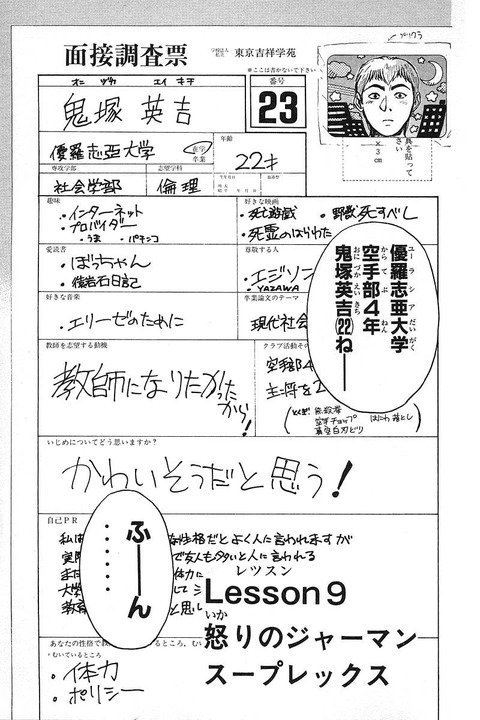 面接調査票
学校法人
私立
東京吉祥学苑
※ここは書かないで下さい
番号
23
オニ ヅカ エイ キチ
鬼塚 英吉
優羅志亜大学
在学
卒業
年齢
22才
専攻学部
志望学科
社会学部
倫理
趣味
・インターネット
・プロバイダー
・うま ・パチンコ
好きな映画
・死亡遊戯 ・野獣死すべし
・死霊のはらわた
愛読書
・ぼっちゃん
尊敬する人
・エジソン
・YAZAWA
好きな音楽
・エリーゼのために
卒業論文のテーマ
現代社会
教師を志望する動機
教師になりたかったから!
クラブ活動その
空手部4
主将を
空手チョップ
真空白刃どり
はにわ落とし
いじめについてどう思いますか?
かわいそうだと思う!
自己PR
私は
な性格だとよく人に言われますが
実際
で友人も多いと人に言われる
また
体力に
大学
教育
と思い
あなたの性格で
・むいているところ
・体力
・ポリシー
真を貼って
さい
×3cm
ユーラシアだいがく
優羅志亜大学
からてぶ ねん
空手部4年
おにづかえいきち
鬼塚英吉(22)ねー
ふーん
・・・・・・
レッスン
Lesson 9
いか
怒りのジャーマン
スープレックス